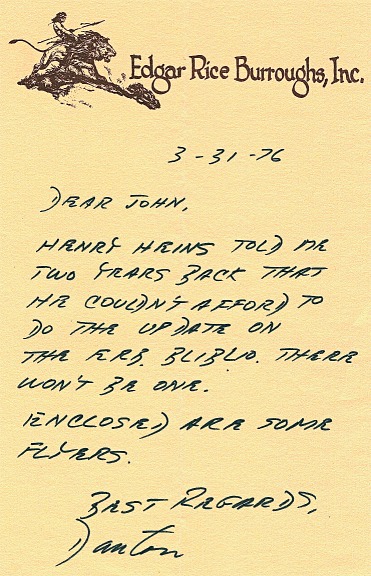 Edgar Rice Burroughs, Inc.
3-31-76
DEAR JOHN,
HENRY HEINS TOLD ME
TWO YEARS BACK THAT
HE COULDN'T AFFORD TO
DO THE UPDATE ON
THE ERB. BIBLIO. THERE
WON'T BE ONE.
ENCLOSED ARE SOME
FLYERS.
BEST REGARDS,
Danton